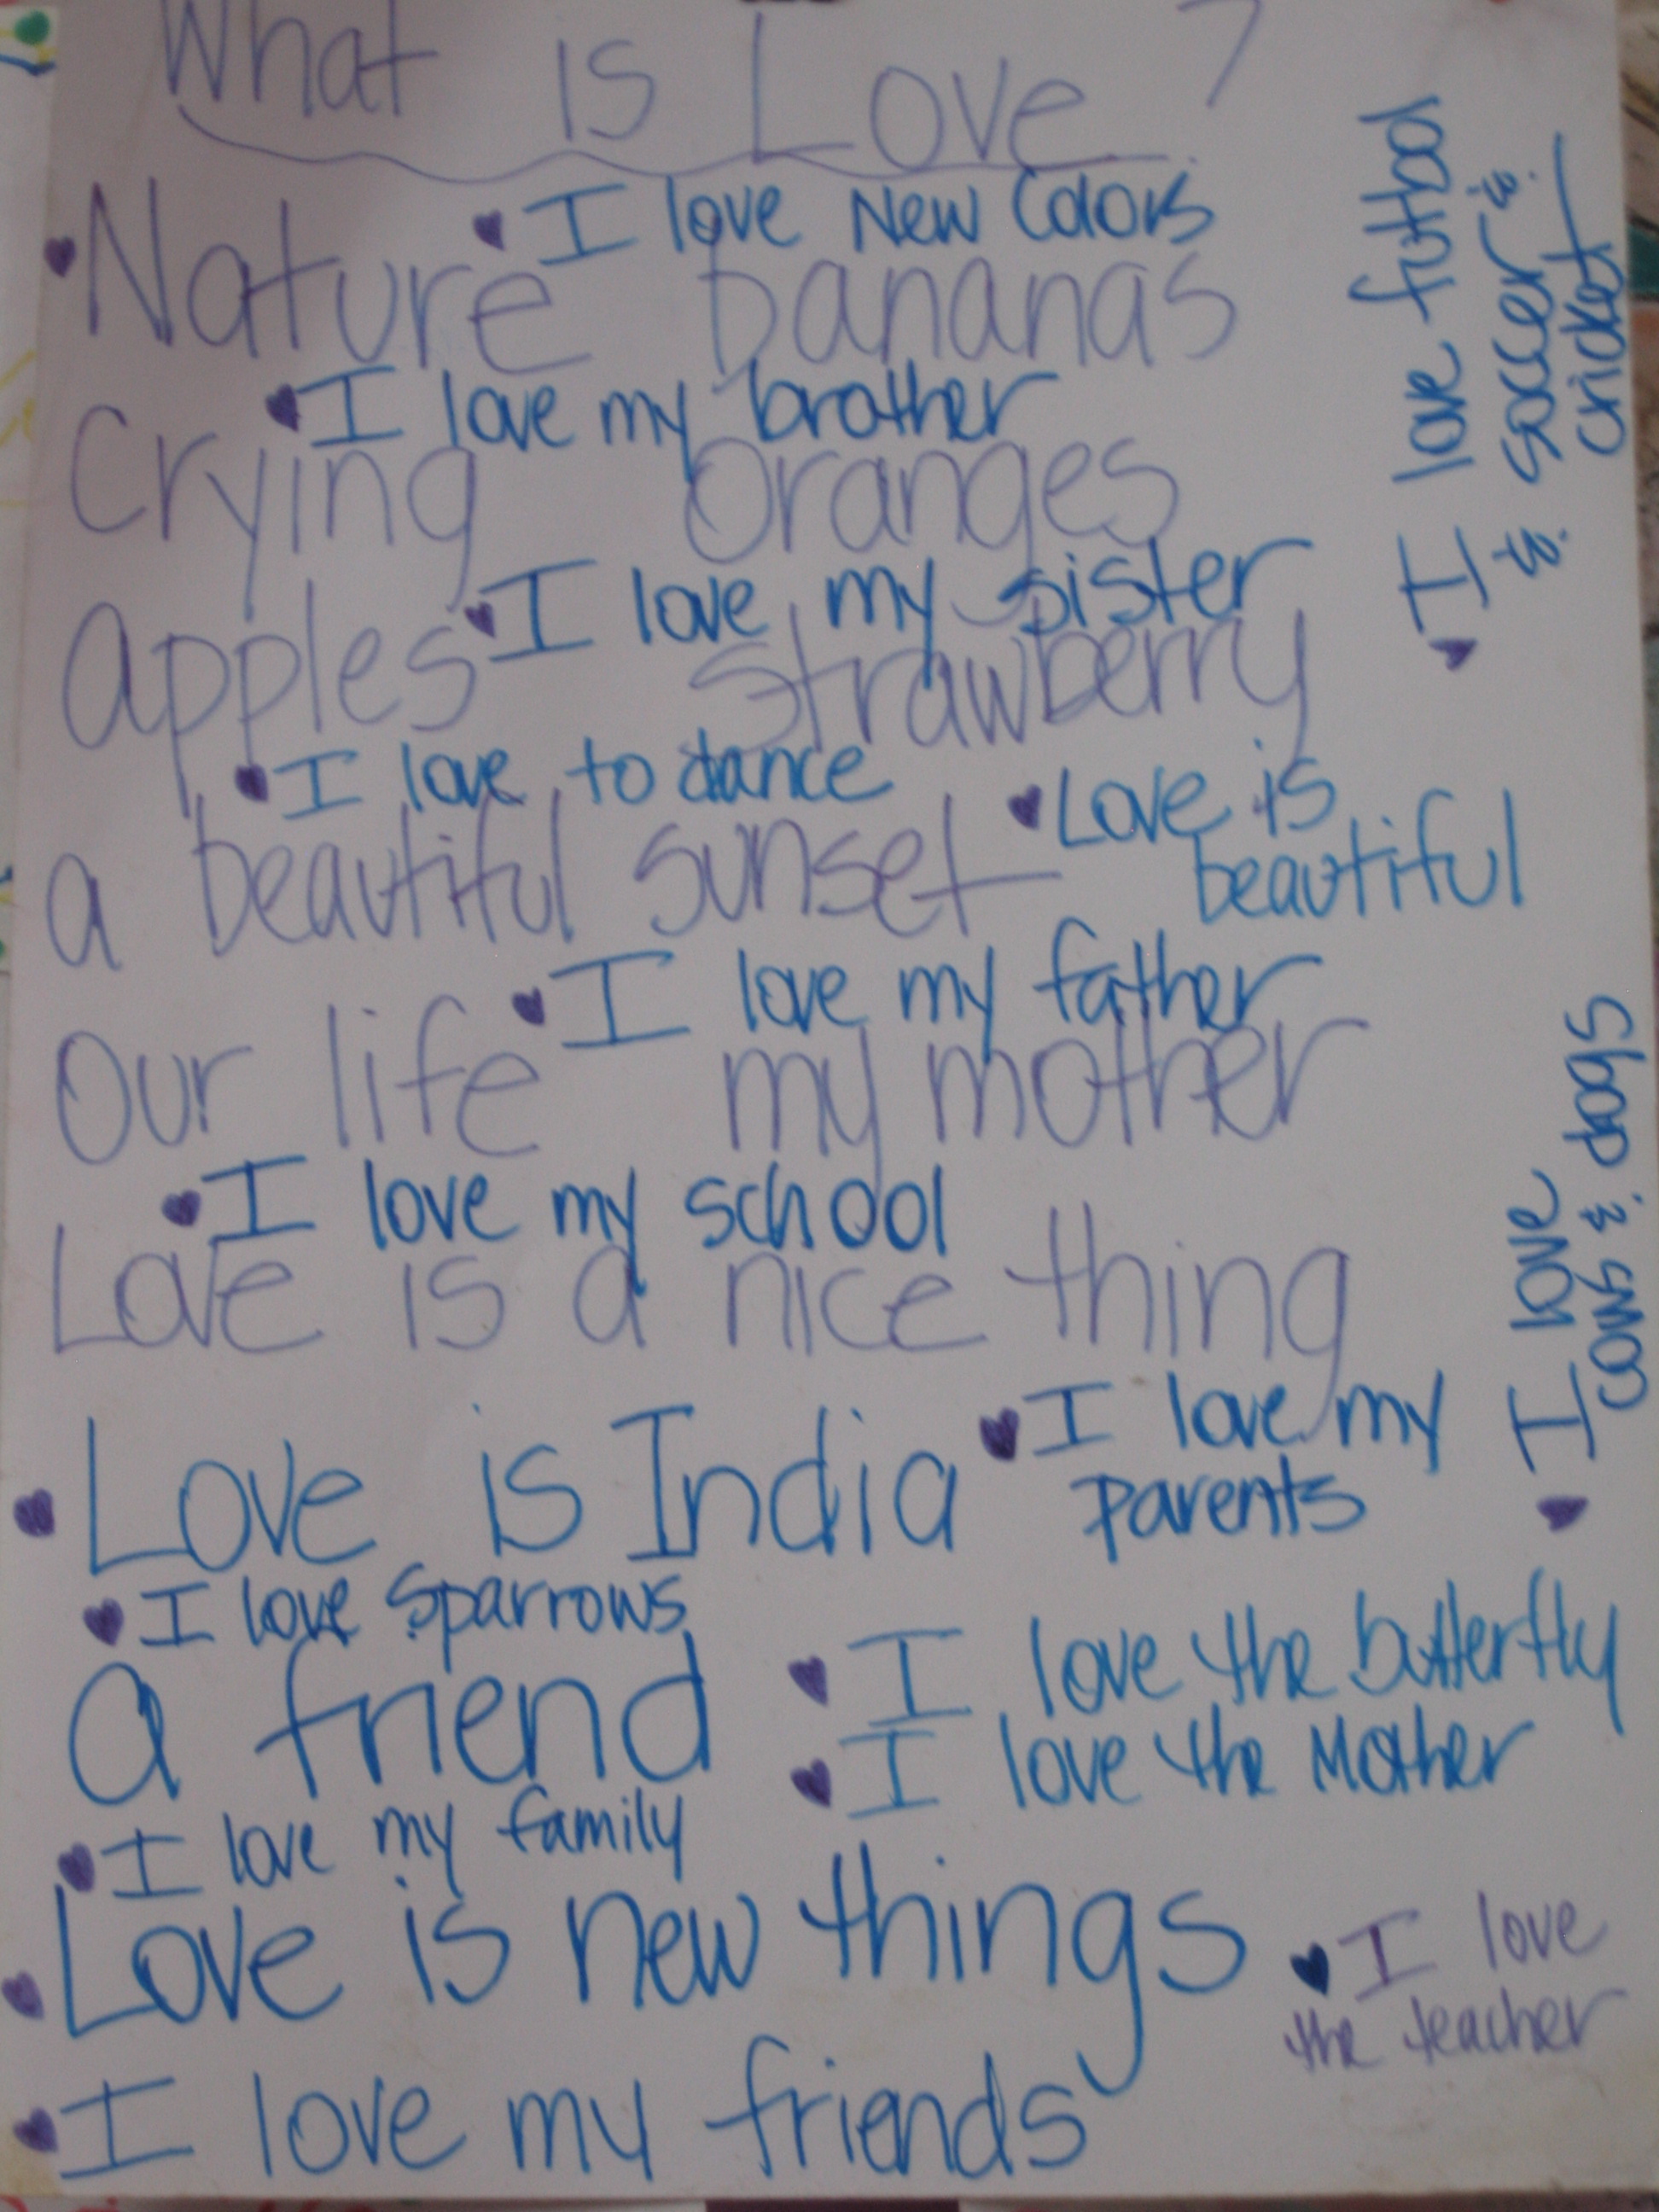 What is Love ?
I love New Colors
Nature bananas
I love my brother
Crying Oranges
I love my sister
apples strawberry
I love to dance
Love is
beautiful
a beautiful sunset
I love my father
Our life my mother
I love my school
Love is a nice thing
Love is India
I love my
parents
I love sparrows
a friend
I love the butterfly
I love the Mother
I love my family
Love is new things
I love
the teacher
I love my friends
I love futbol
& soccer &
cricket
I love
cows & dogs